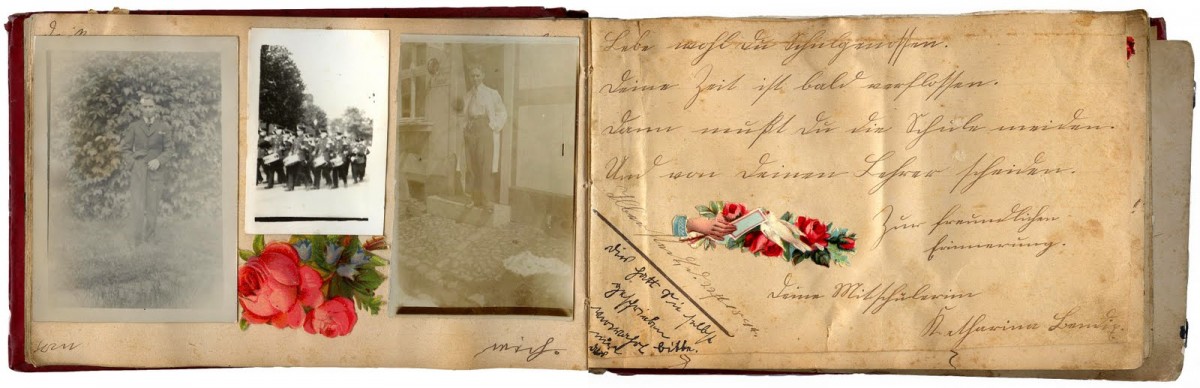 ern
mich.
Lebe wohl du Schulgenossen.
Deine Zeit ist bald verflossen.
Dann mußt du die Schule meiden.
Und von deinen Lehrer scheiden.
Zur freundlichen
Erinnerung.
Deine Mitschülerin
Katharina
Dies hat sie selbst
geschrieben
bitte.